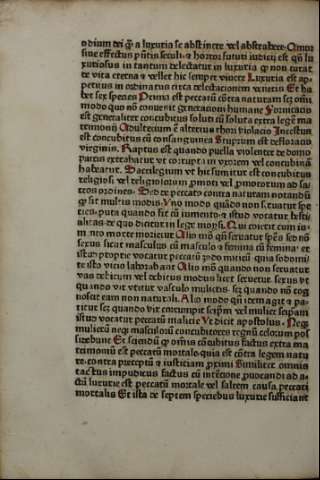 odium dei q̄ a luxuria se abstinere vel abstrahere. Quin
sine effectus pñtis seculi a horror futuri iudicii est qñ lu
xuriosus in tantum delectatur in luxuria q̄ non curat
de vita eterna a vellet hic semper vivere Luxuria est ap
petitus in ordinatus circa delectacionem venereis Et ha
bet sex species Prima est peccatū cōtra naturam sez oīmī
modo quo nō convenit generationi humane Fornicatio
est generaliter concubitus soluti cū soluta extra legē ma
trimonii Adulterium ē alterius thori violacio Incestus
est concubitus cū consanguinea Stuprum est defloracio
virginis. Raptus est quando puella violenter de domo
patris extrahatur vt corrupta in vxorem vel concubinā
habeatur. Sacrilegium vt hic sumitur est concubitus
religiosi vel religiosarum pmon vel pmovorum ad sa
cros ordines. Sed de peccato contra naturam notandū
q̄ fit multis modis. Vno modo quādo non servatur spe
cies, puta quando fit cū iumento a istud vocatur bestia
litas. de quo dicitur in lege moysi. Qui coierit cum iu
mento morte moriatur Alio mō qñ servatur spēs sed nō
sexus sicut masculus cū masculo a femina cū femina a
istud proprie vocatur peccatū zodomiticū quia sodomi
te isto vicio laborabant Alio mō quando non servatur
vas debitum vel debitus modus licet servetur sexus vt
quando vir vtitur vasculo mulieris, sez quando nō cog
noscit eam non naturali. Alio modo qñ item agit a pa
titur sez quando vir corrumpit seipm vel mulier seipam
istud vocatur peccatū malicie Vt dicit apostolus. Neqz
mulierū neqz masculorū concubitores regnū celorum pos
sidebunt Et sciendū q̄ omīs cōcubitus factus extra ma
trimoniū est peccatū mortale. quia est cōtra legem natu
re. contra preceptū a iustitiam proximi Similiter omnis
tactus impudicus factus cū intēcione provocandi ad a
ctū luxurie est peccatū mortale vel saltem causa peccati
mortalis Et ista de septem speciebus luxurie sufficiant